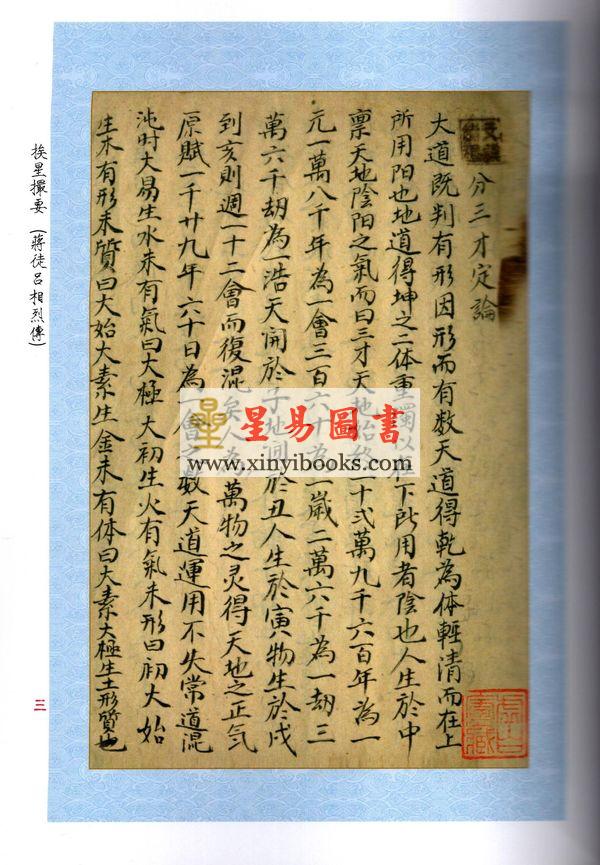 分三才定論
大道既判有形因形而有数天道得乾為体輕清而在上
所用陽也地道得坤之二体重濁以在下所用者陰也人生於中
禀天地陰阳之氣而曰三才天地始终二十弍萬九千六百年為一
元一萬八千年為一會三百六十為一歲二萬六千為一劫三
萬六千劫為一浩天開於子地闢於丑人生於寅物生於戌
到亥則週一十二會而復混矣人為萬物之灵得天地之正気
原賦一千廿九年六十日為一會之数天道運用不失常道混
沌时大易生水未有氣曰大極大初生火有氣未形曰初大始
生木有形未質曰大始大素生金未有体曰大素大極生土形質也
挨星撮要（蔣徒呂相烈傳）
三
星易圖書
www.xinyibooks.com